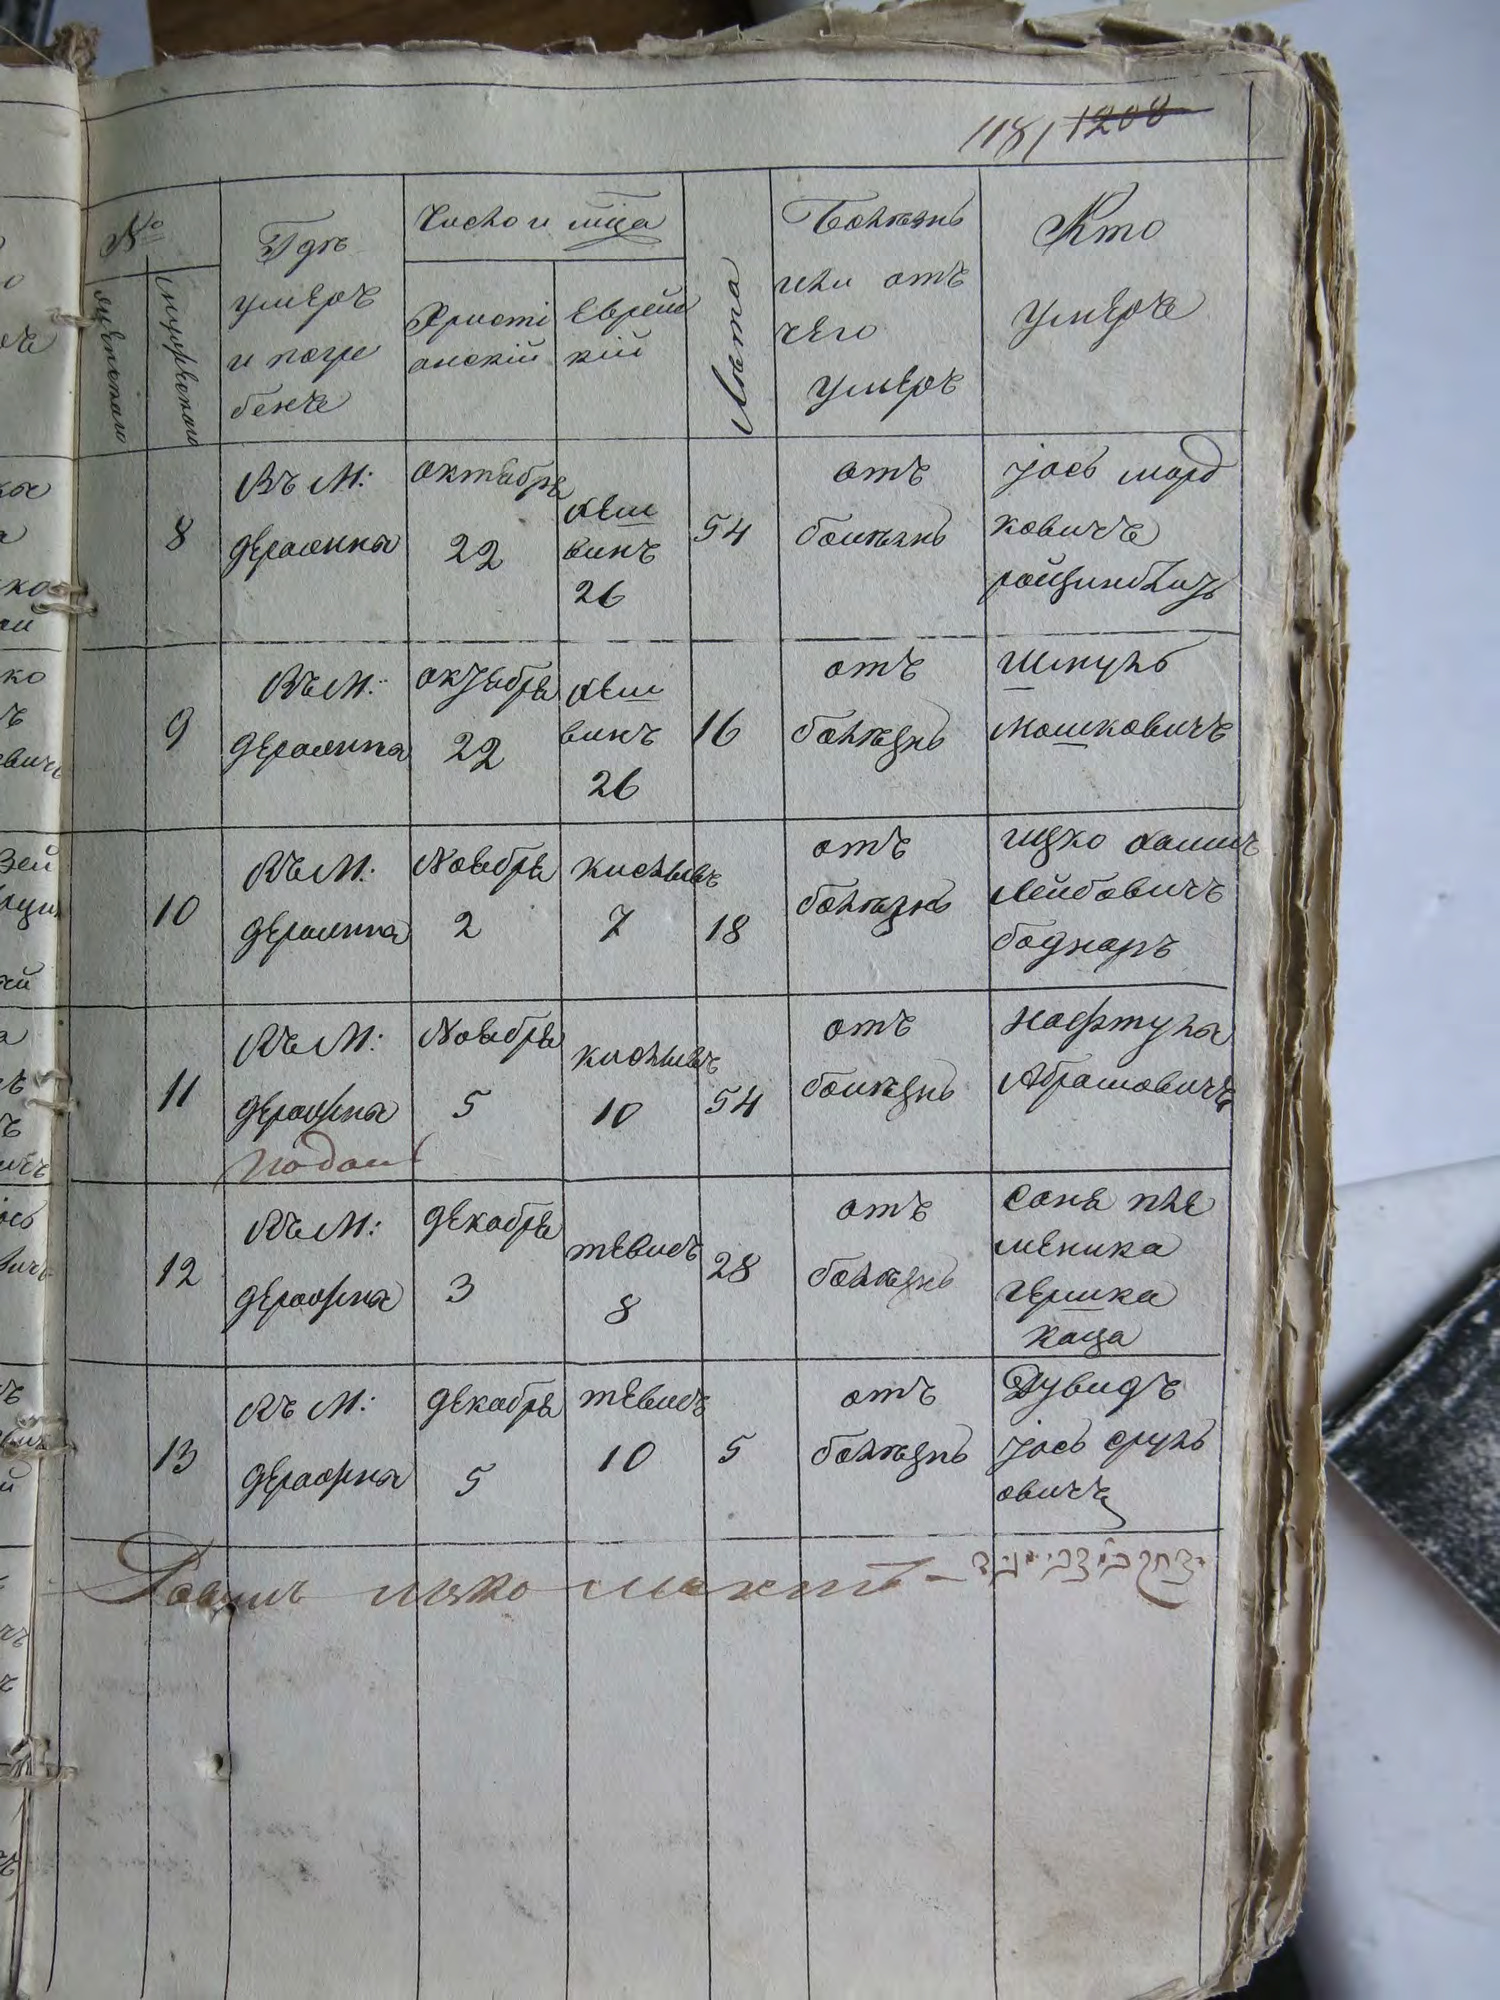 1181 1208
№
женскаго
мужескаго
Гдѣ
умеръ
и погре
бенъ
Число и мѣца
Христі
анскій
Еврейс
кій
Лѣта
Болѣзнь
или отъ
чего
умеръ
Кто
умеръ
8
Въ М:
деражна
октабра
22
хеш
винъ
26
54
отъ
болѣзнь
іось морд
ковичъ
9
Въ М:
деражна
октабра
22
хеш
винъ
26
16
отъ
болѣзнь
шмуль
мошковичъ
10
Въ М:
деражна
Ноабра
2
кислывъ
7
18
отъ
болѣзнь
ицко хаимъ
лейбовичъ
боднаръ
11
Въ М:
деражна
Ноабра
5
кислывъ
10
54
отъ
болѣзнь
нафтула
Абрамовичъ
12
Въ М:
деражна
декабра
3
тевисъ
8
28
отъ
болѣзнь
сона пле
меника
гершка
каца
13
Въ М:
деражна
декабра
5
тевисъ
10
5
отъ
болѣзнь
Дувидъ
іось сруль
овичъ
Равинъ ицко